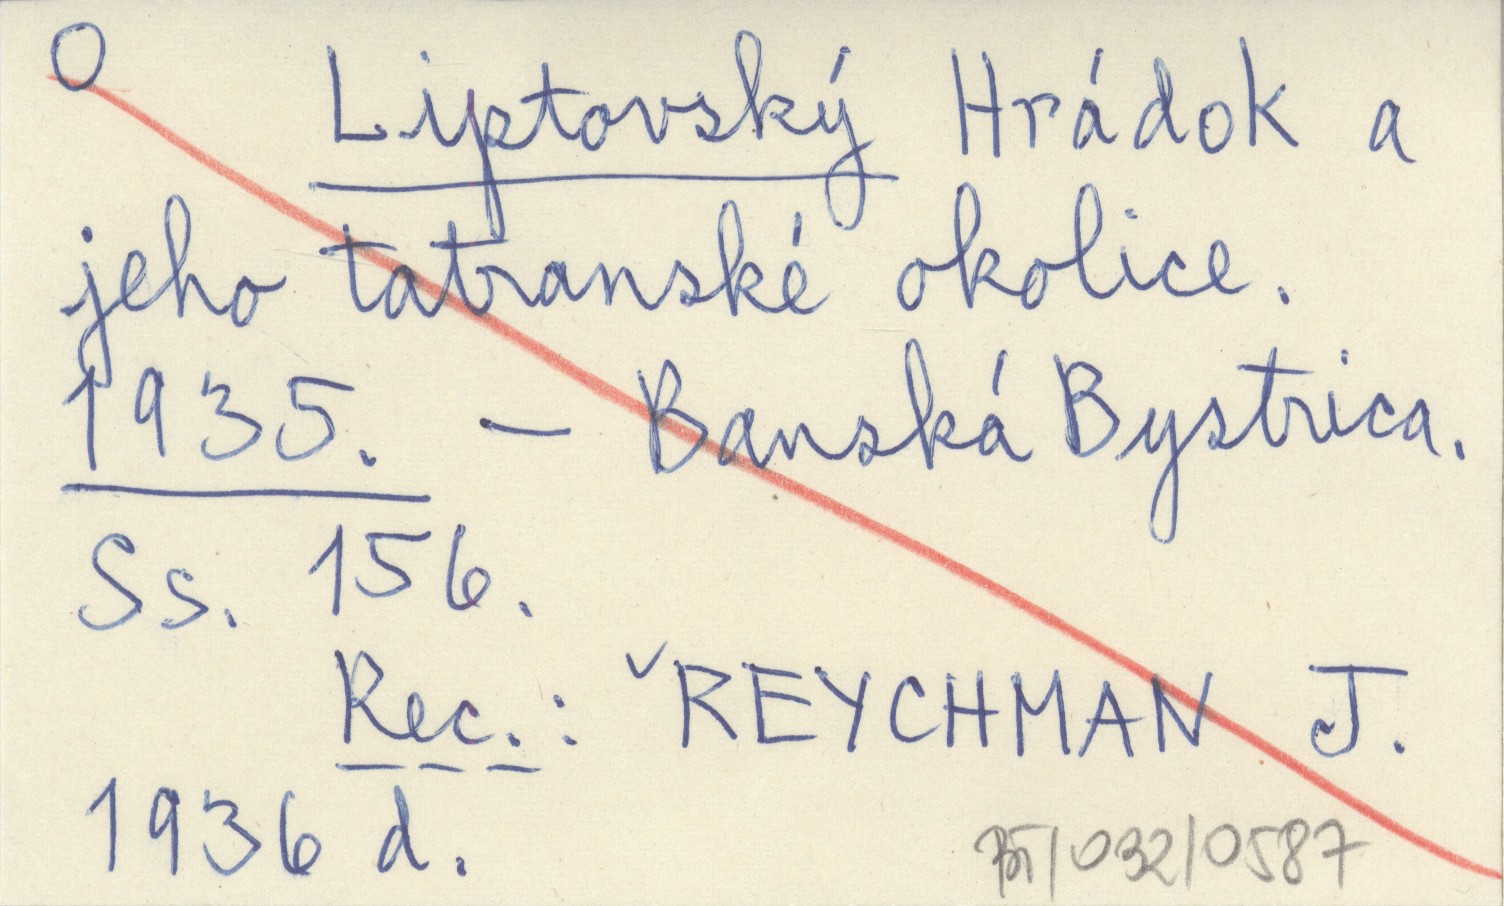 O Liptovský Hrádok a
jeho tatranské okolice.
1935. – Banská Bystrica.
Ss. 156.
Rec.: ˇREYCHMAN J.
1936 d.
/032/0587